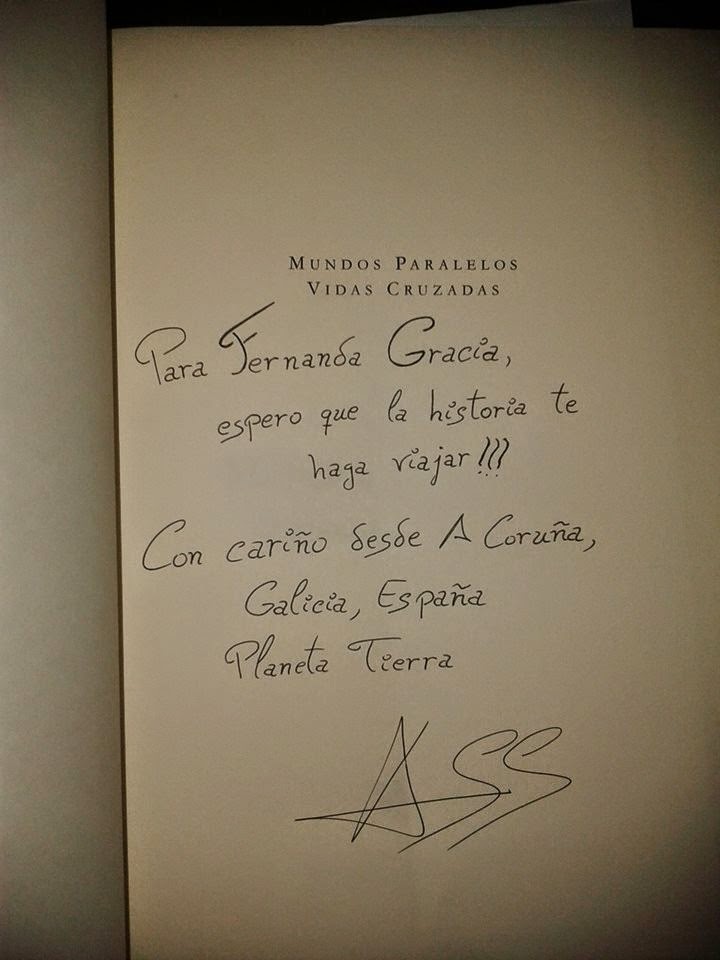 MUNDOS PARALELOS
VIDAS CRUZADAS
Para Fernanda Gracia,
espero que la historia te
haga viajar!!!
Con cariño desde A Coruña,
Galicia, España
Planeta Tierra
ASS